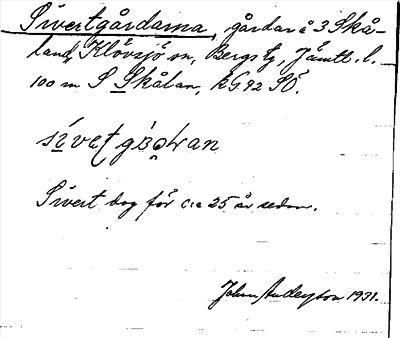 Sivertgårdarna, gårdar å 3 Skå-
land, Klövsjö sn, Bergs tg, Jämtl. l.
100 m S Skålan, kG92 SÖ.
Sivert dog för c:a 25 år sedan.
John 1931.